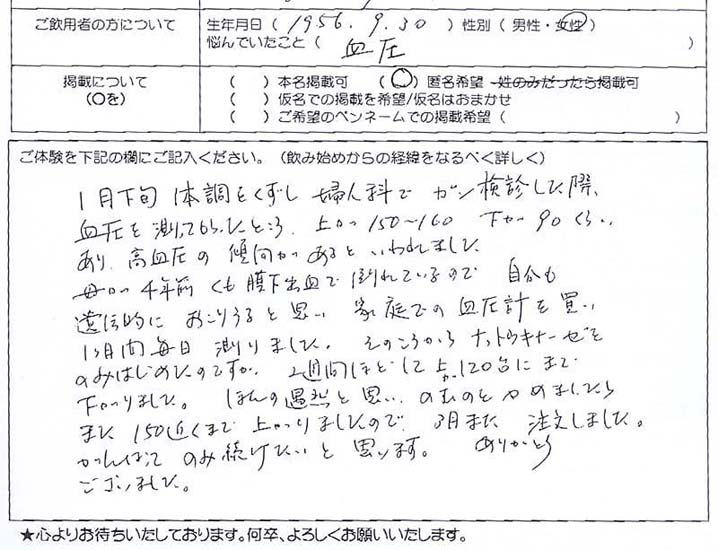 ご飲用者の方について 生年月日( 1956. 9. 30 ) 性別 ( 男性・女性 )
悩んでいたこと ( 血圧 )
掲載について ( ) 本名掲載可 ( ○ ) 匿名希望 姓のみだったら掲載可
(○を) ( ) 仮名での掲載を希望/仮名はおまかせ
( ) ご希望のペンネームでの掲載希望 ( )
ご体験を下記の欄にご記入ください。(飲み始めからの経緯をなるべく詳しく)
1月下旬 体調をくずし 婦人科で ガン検診した際、
血圧を測ってもらったところ 上が 150〜160 下が 90くらい
あり、高血圧の傾向があるといわれました
母が 4年前 くも膜下出血で 倒れているので 自分も
遺伝的に おこりうると思い 家庭での 血圧計を買い
1ヶ月間毎日 測りました。そのころから ナットウキナーゼを
のみはじめたのですが、2週間ほどして 上が120台にまで
下がりました。 ほんの偶然と思い、のむのをやめましたら
また 150近くまで 上がりましたので、3月また 注文しました。
がんばって のみ続けたいと 思います。 ありがとう
ございました。
★心よりお待ちいたしております。何卒、よろしくお願いいたします。